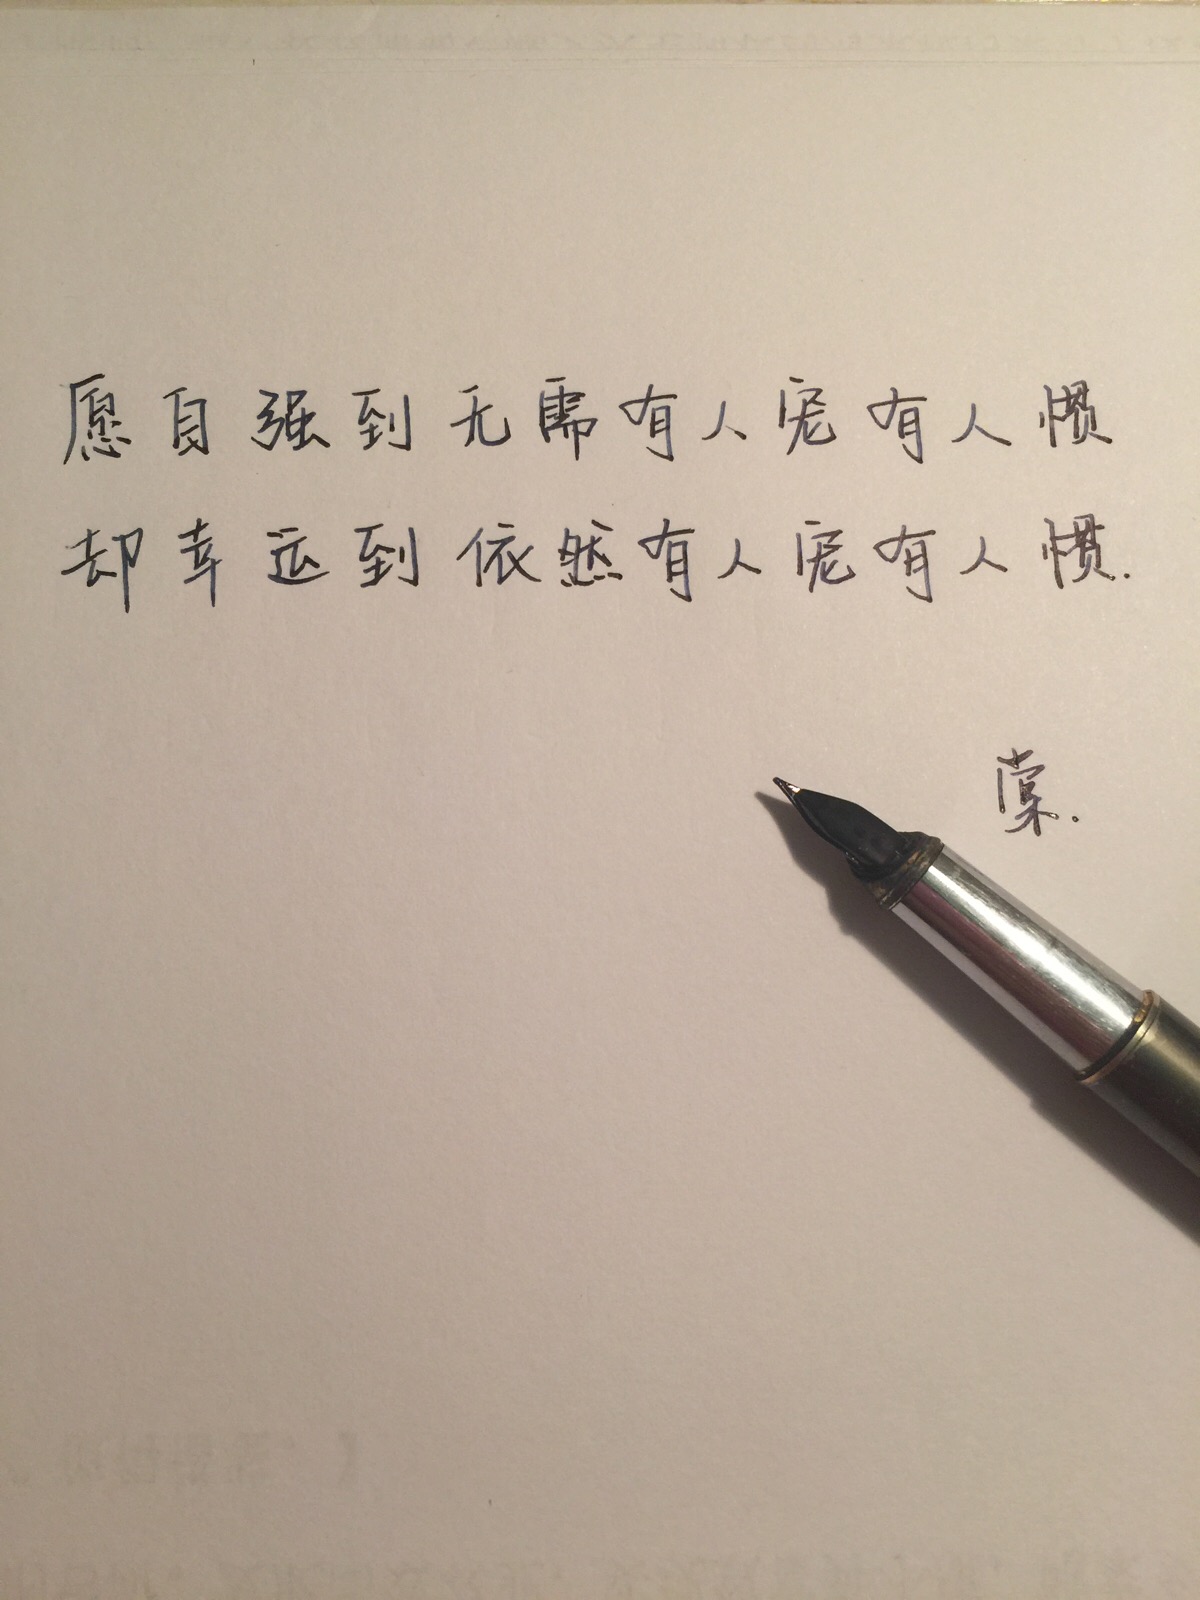 愿自强到无需有人宠有人惯
却幸运到依然有人宠有人惯.
棠.